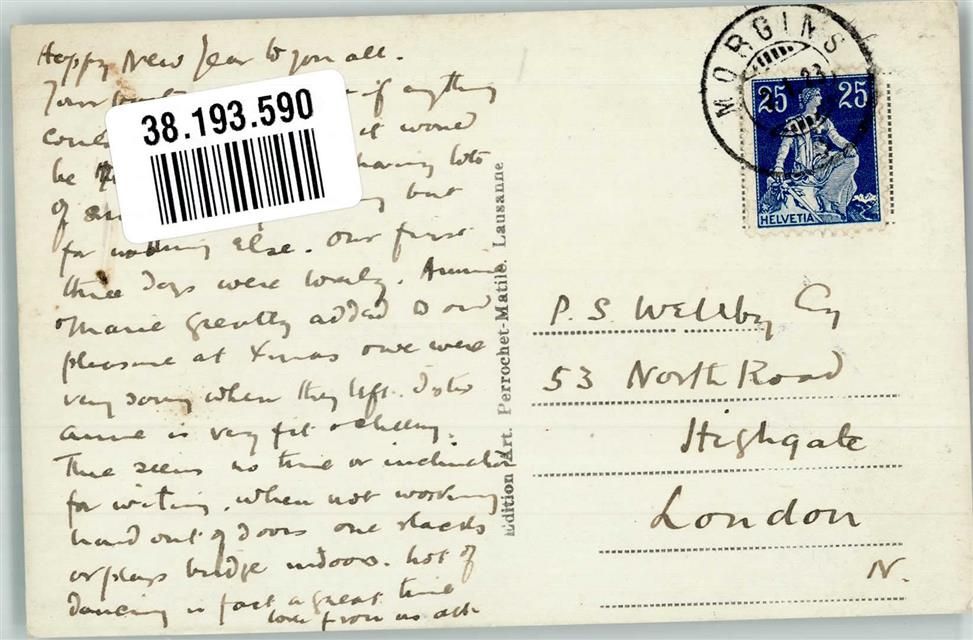 Happy New Year to you all.
if anything
it would
be having lots
of but
for nothing else. Our first
three days were lovely. Annie
& Marie greatly added to our
pleasure at Xmas & we were
very sorry when they left.
Anne is very fit & cheery.
There seems no time or inclination
for writing. When not working
hard out of doors one slacks
or plays bridge indoors. Lots of
dancing in fact a great time
love from us all
38.193.590
Edition d'Art. Perrochet-Matile. Lausanne
MORGINS
23
25 25
HELVETIA
P. S. Wellby Esq
53 North Road
Highgate
London
N.